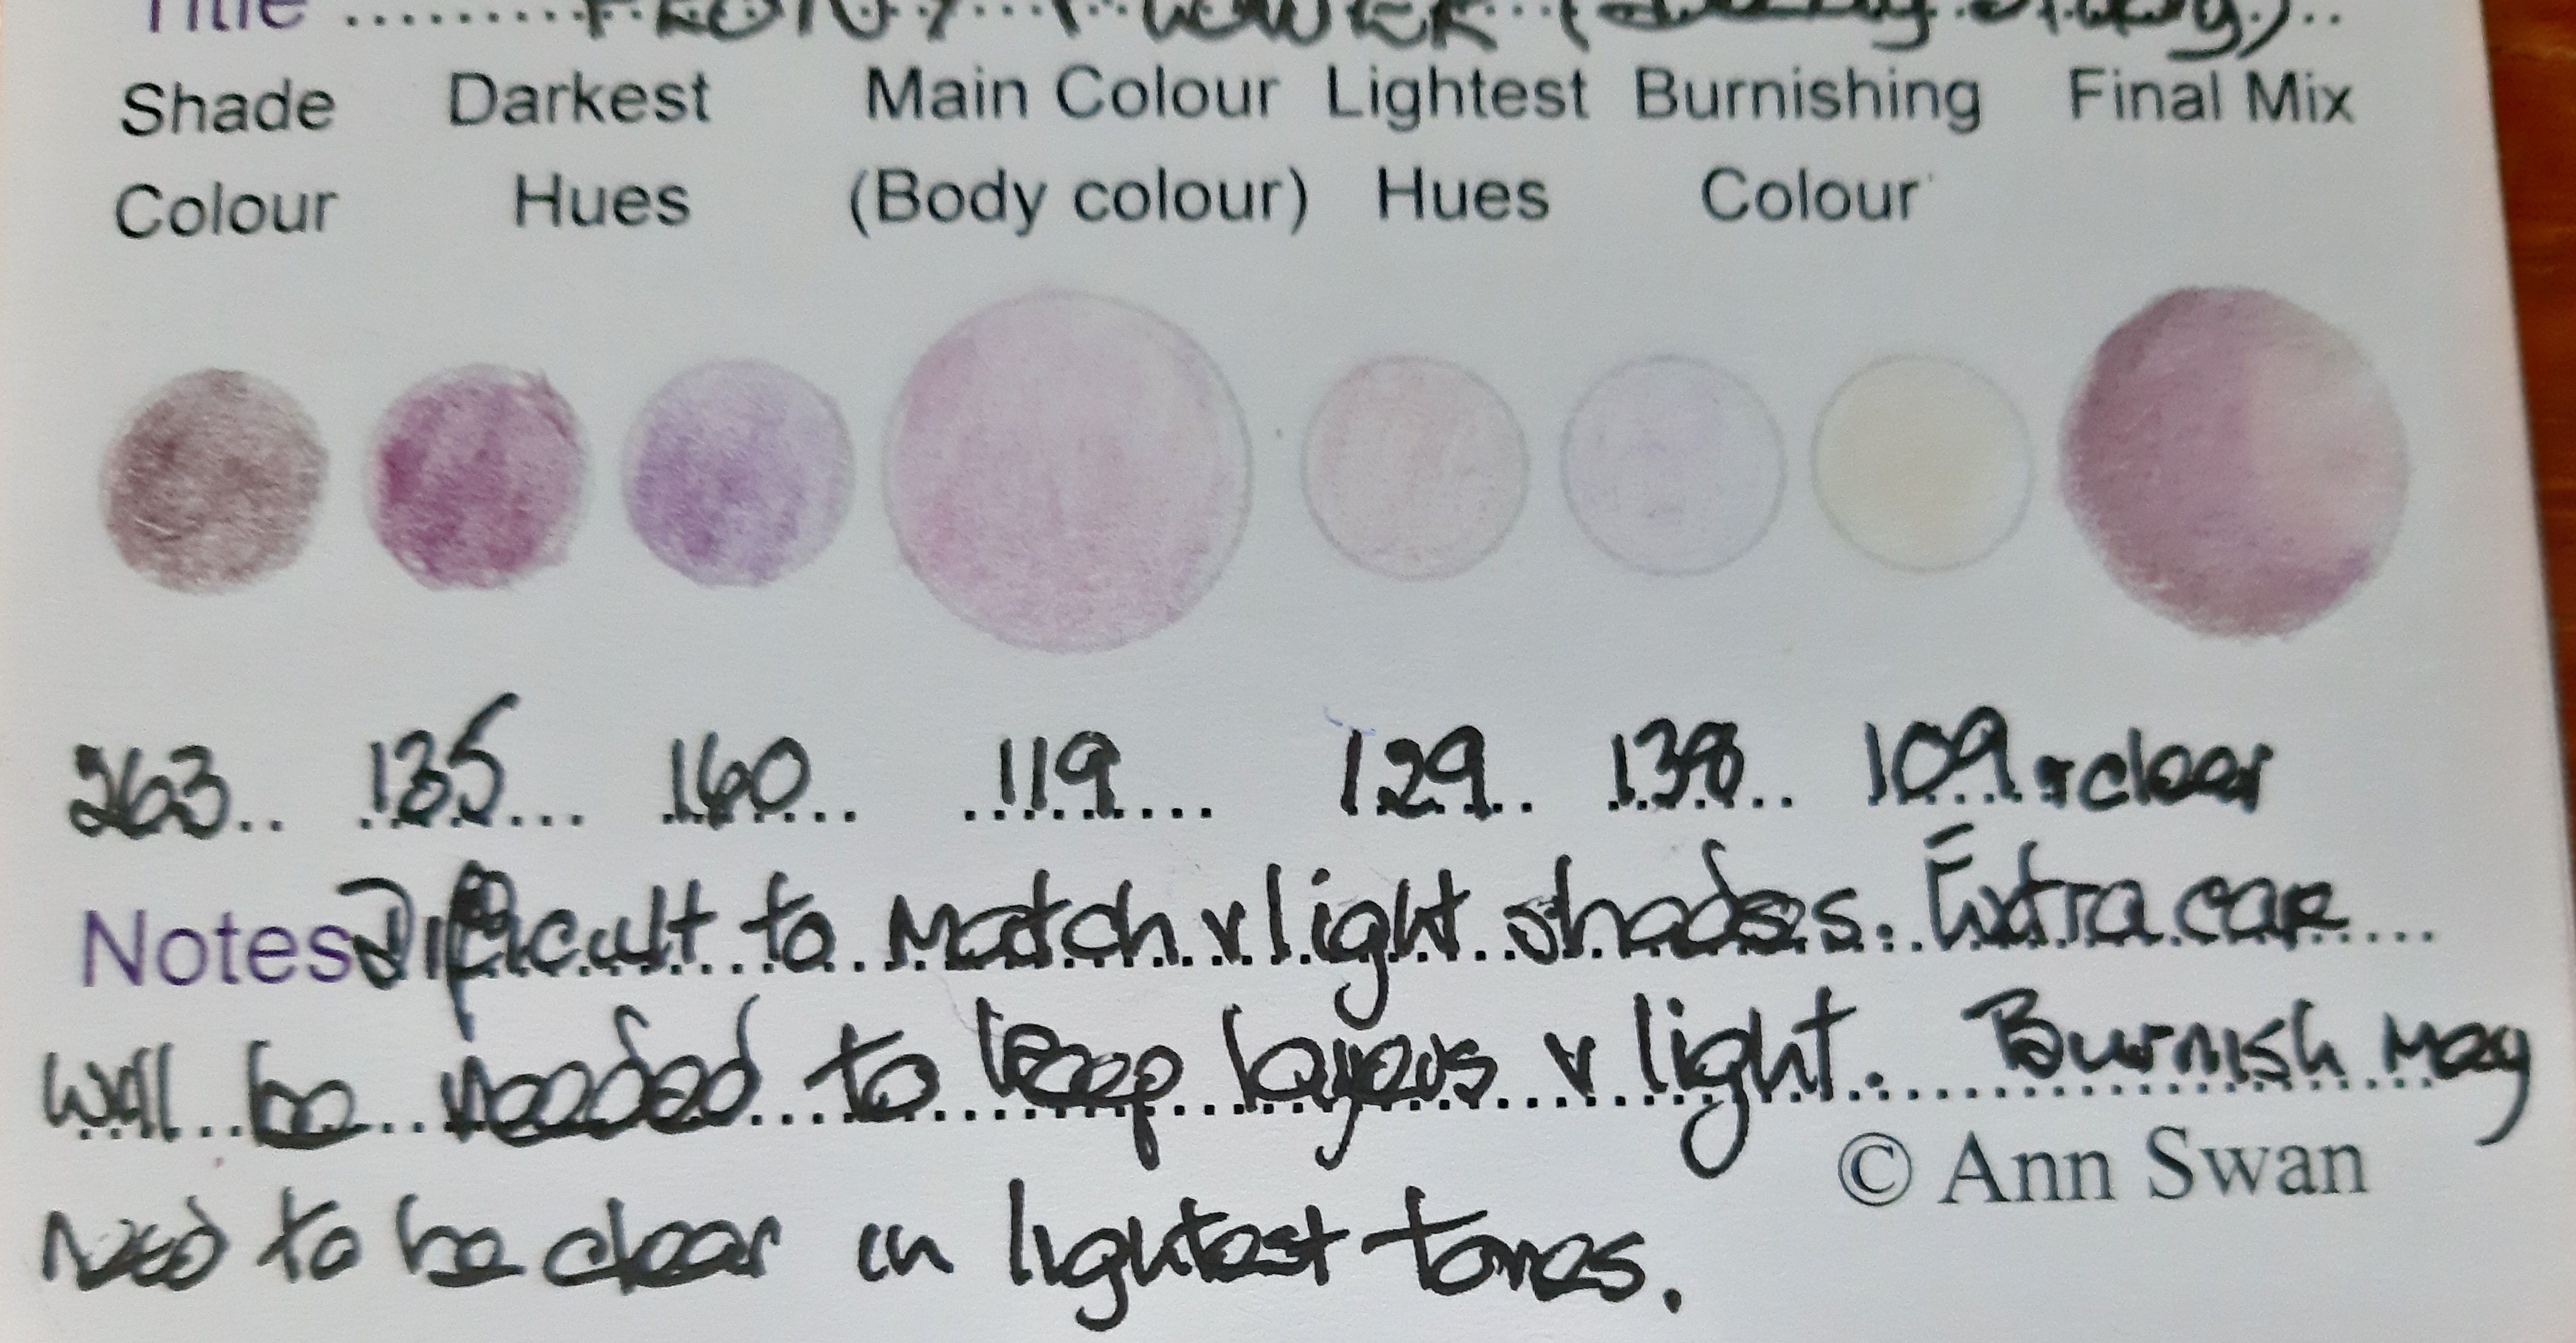 Title ............ PEONY FLOWER ( study) ..
Shade Darkest Main Colour Lightest Burnishing Final Mix
Colour Hues (Body colour) Hues Colour
263.. .135... .160... ...119.... 129.. .138.. 109 + clear
Notes Difficult to match v light shades. Extra care....
will be needed to keep layers v light. Burnish may
© Ann Swan
need to be clear in lightest tones.